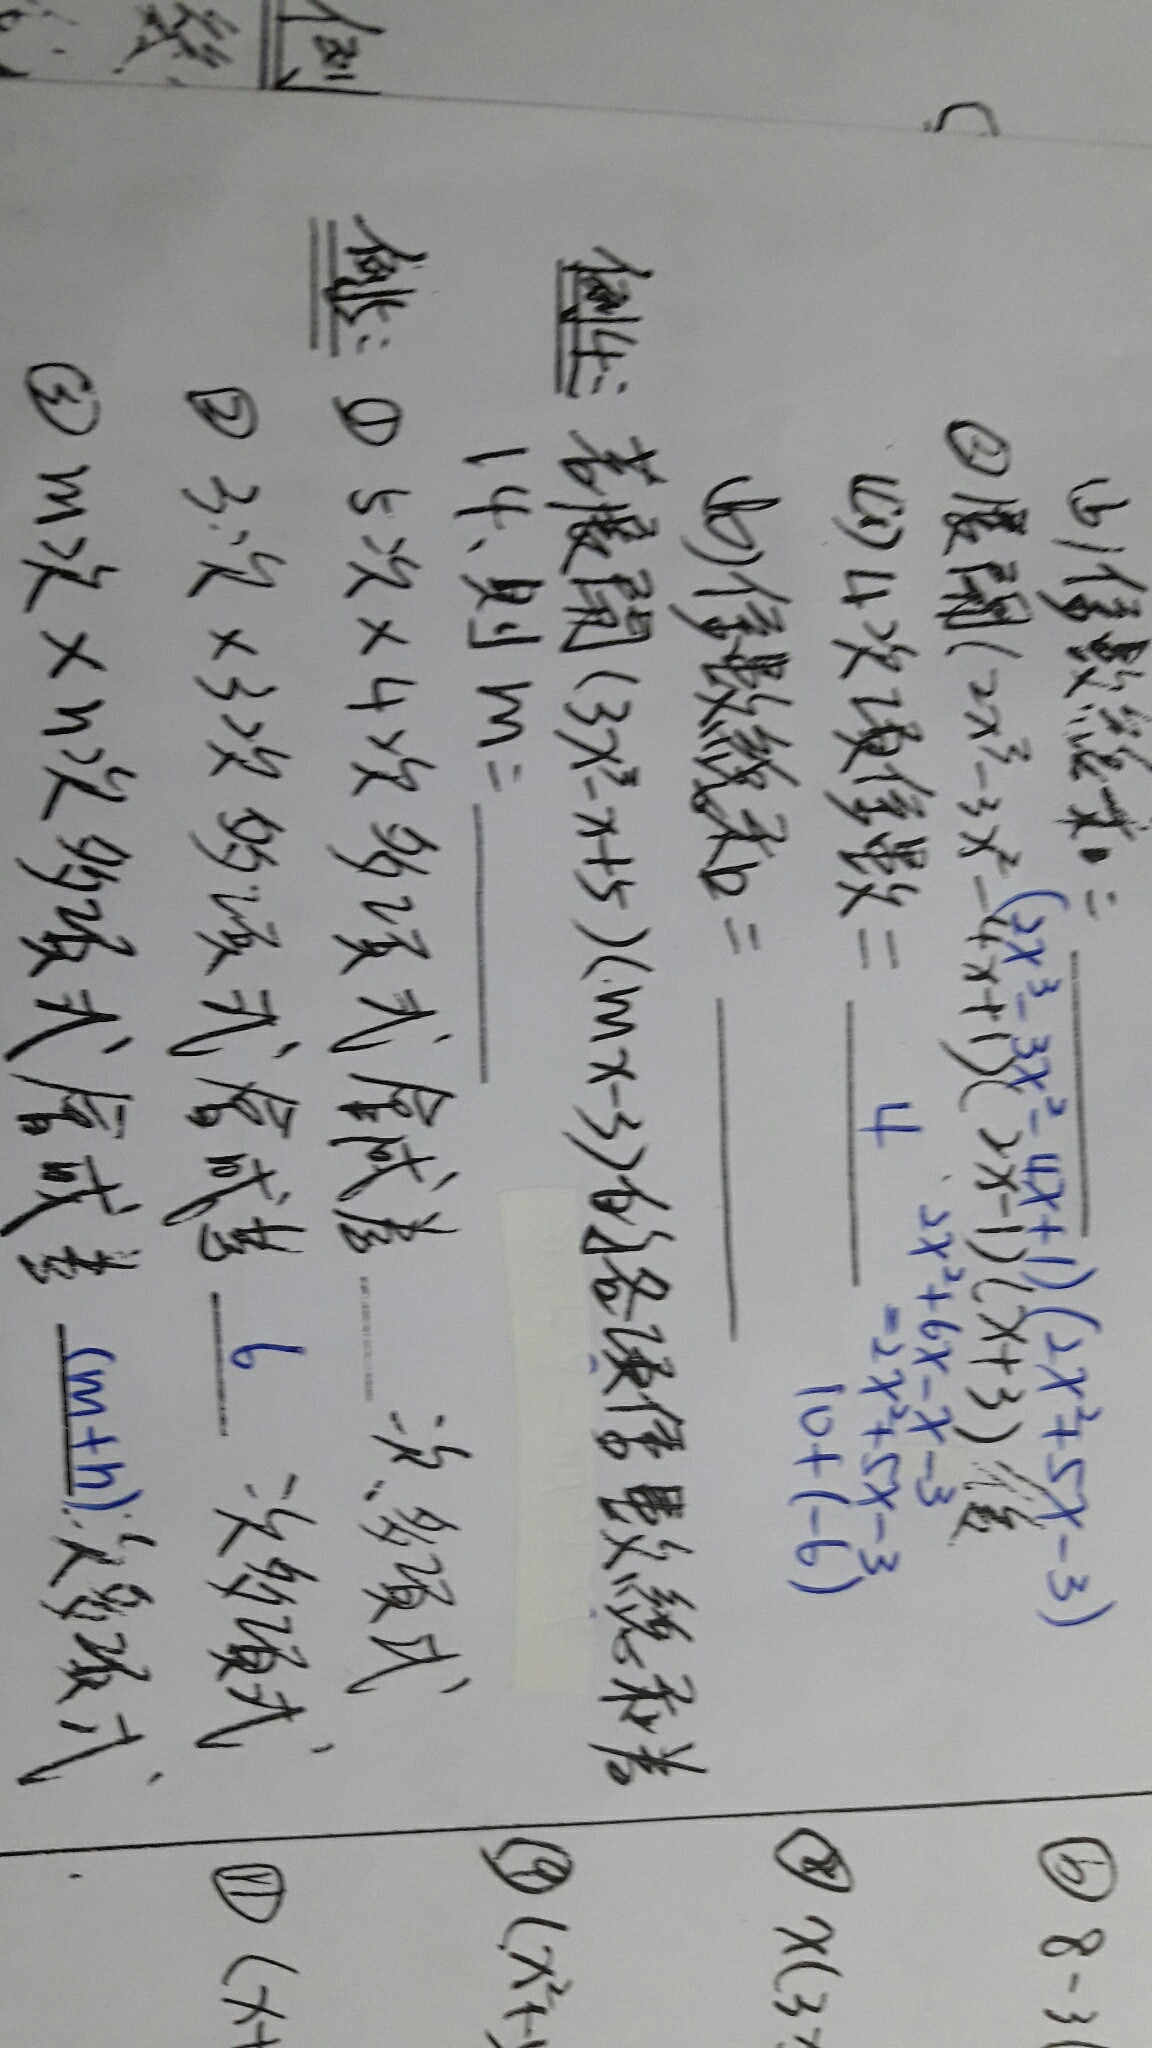 (b) 係數總和=
(2x³-3x²-4x+1)(2x²+5x-3)
② 展開(2x³-3x²-4x+1)(2x-1)(x+3)後
2x²+6x-x-3
(a) 4次項係數= 4
=2x²+5x-3
10+(-6)
(b) 係數總和=
例4: 若展開(3x²-x+5)(mx-3)的各項係數總和為
14、則m=
例5: ① 5次×4次多項式會成為 次多項式、
② 3次×3次多項式、會成為 6 次多項式、
③ m次×n次多項式、會成為 (m+n) 次多項式、
⑥ 8-3(
⑧ x(3
⑨ (x²+
⑪ (x+
例